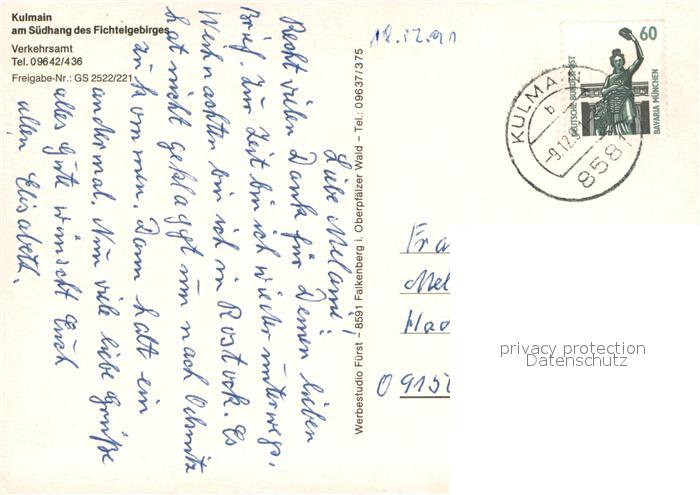 Kulmain
am Südhang des Fichtelgebirges
Verkehrsamt
Tel. 09642/436
Freigabe-Nr.: GS 2522/221
Liebe Melanie!
Recht vielen Dank für Deinen lieben
Brief. Zur Zeit bin ich wieder unterwegs,
Weihnachten bin ich in Rostock. Es
hat nicht geklappt nun nach Oelsnitz
zu kommen, Dann halt ein
andermal. Nun viele liebe Grüße
alles Gute wünscht Euch
allen Elisabeth.
Werbestudio Fürst - 8591 Falkenberg i. Oberpfälzer Wald - Tel.: 09637/375
12.12.91
60
DEUTSCHE BUNDESPOST
BAVARIA MÜNCHEN
KULMA
b
-9.12.9
8581
Fra
Mel
Hau
O 9157
privacy protection
Datenschutz